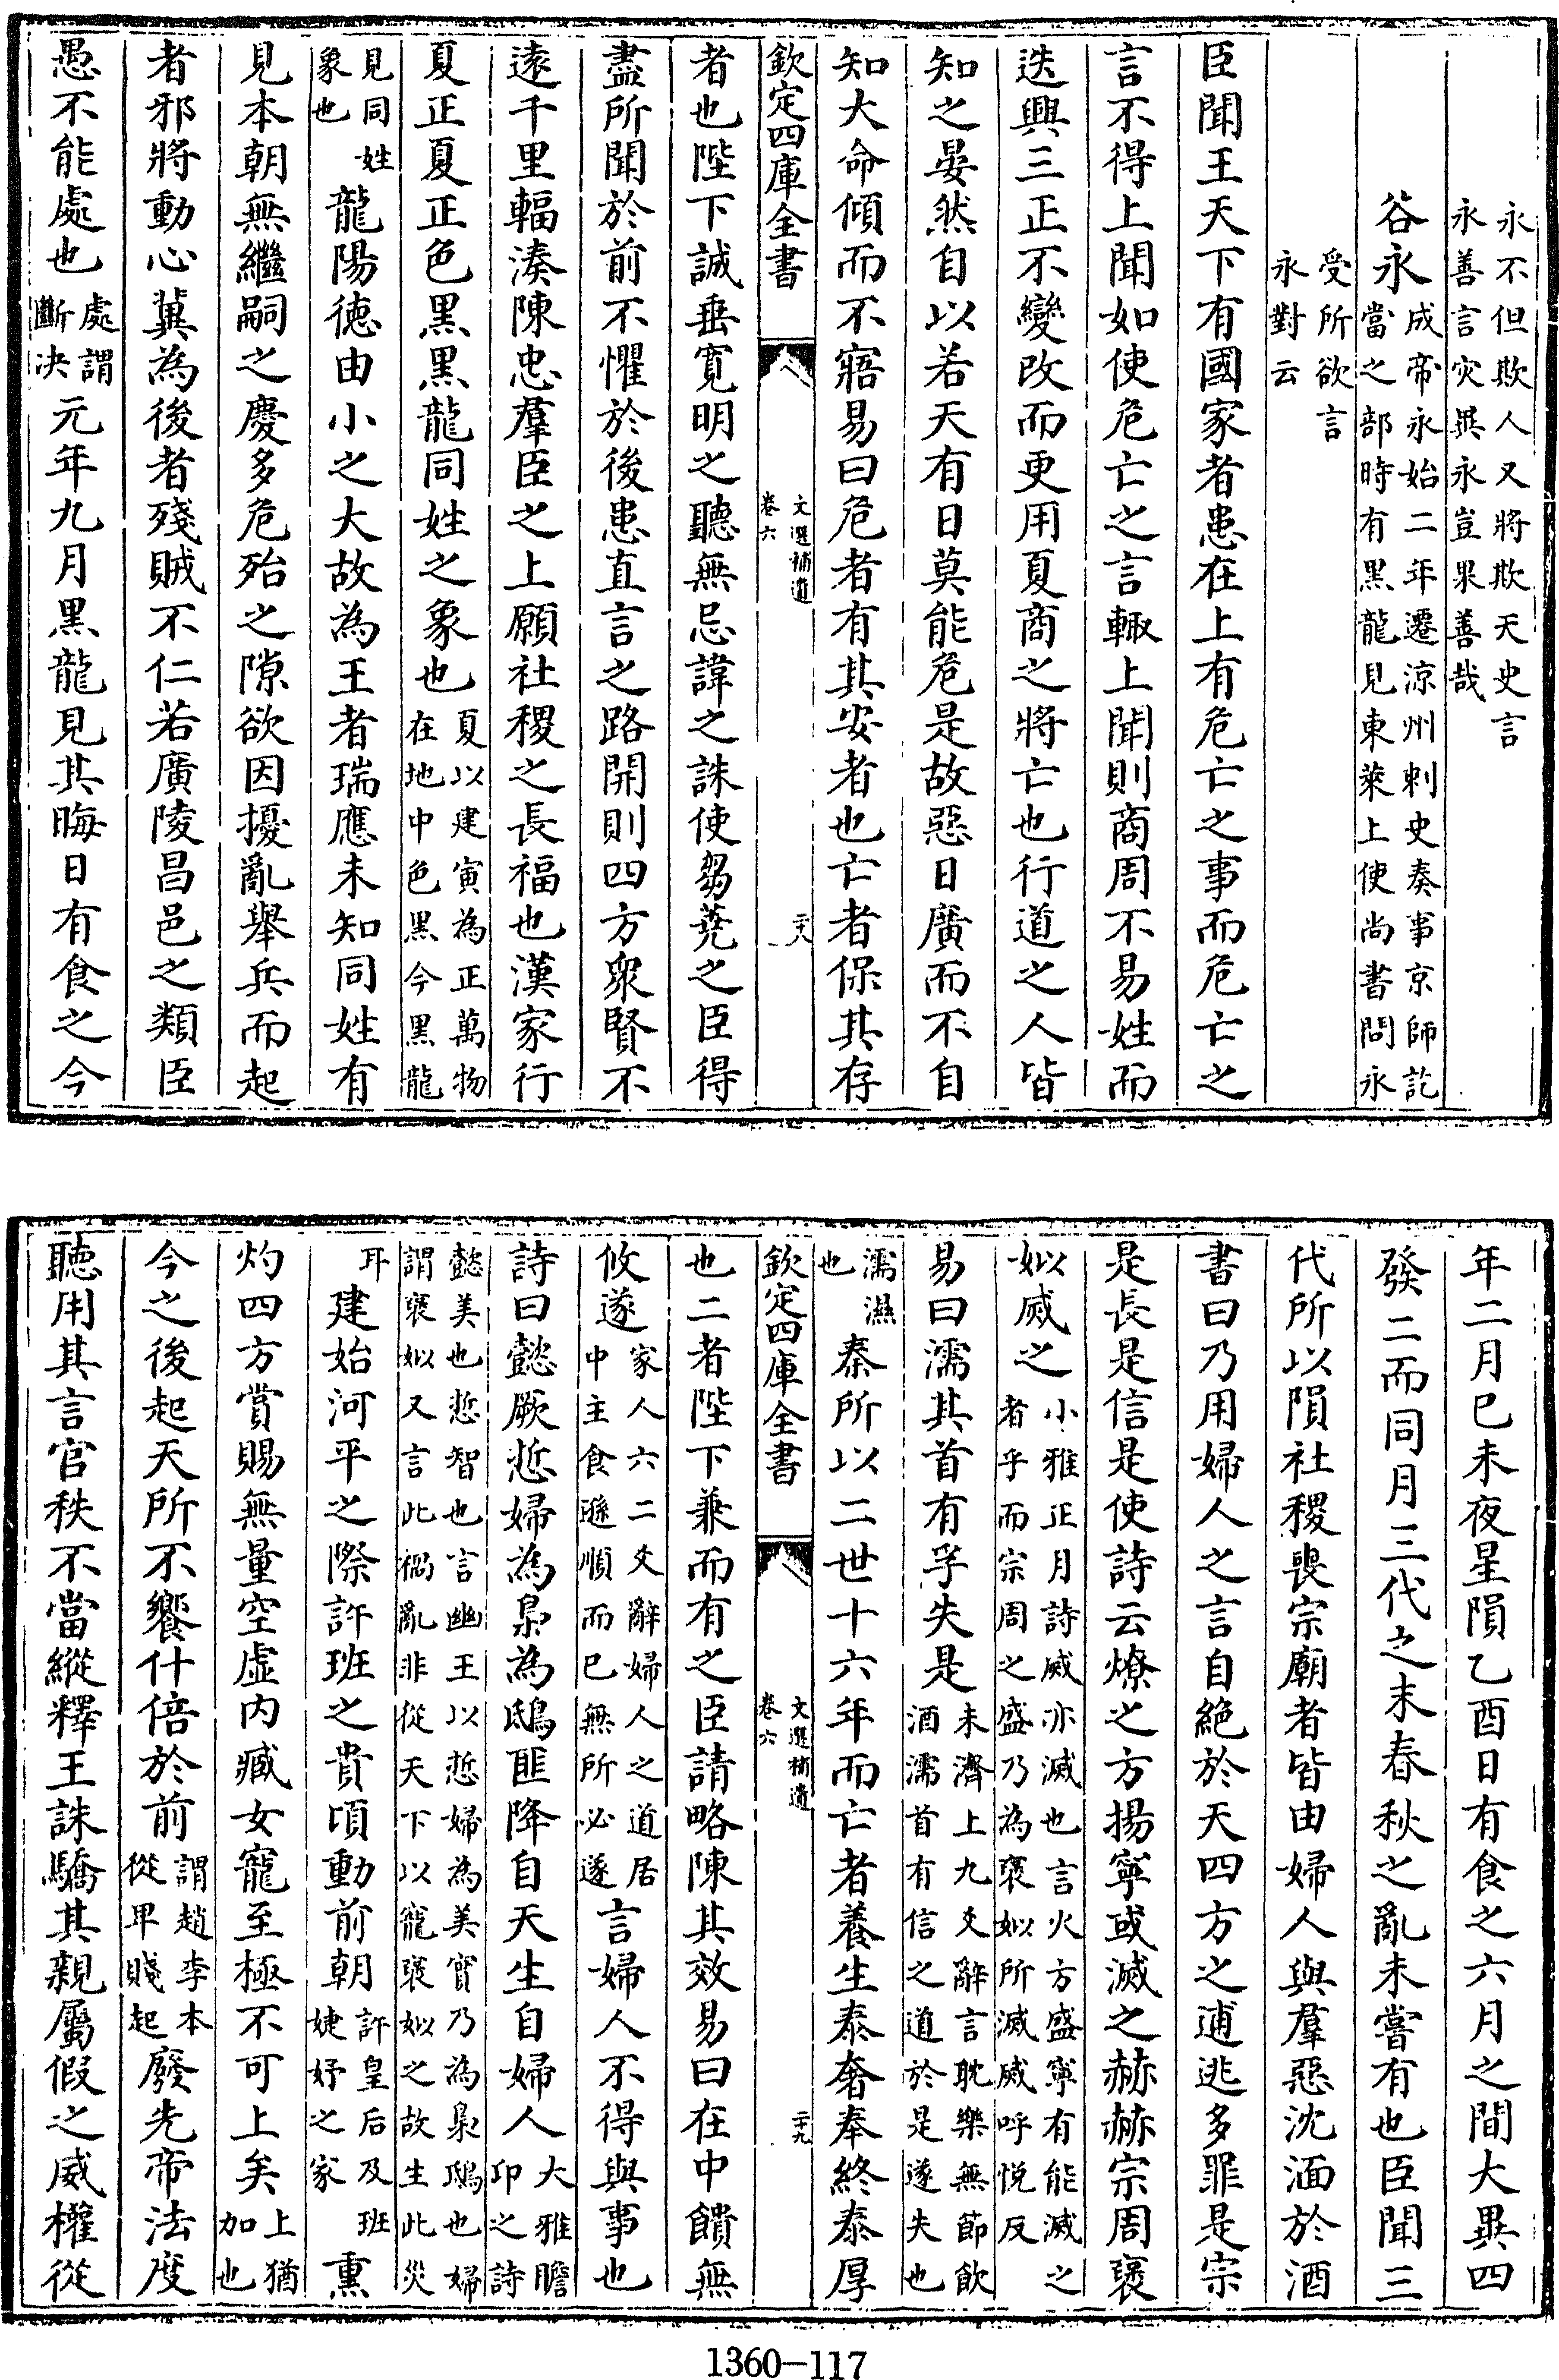 永不但欺人又將欺天史言
永善言灾異永豈果善哉
谷永成帝永始二年遷涼州刺史奏事京師訖
當之部時有黑龍見東萊上使尚書問永
受所欲言
永對云
臣聞王天下有國家者患在上有危亡之事而危亡之
言不得上聞如使危亡之言輒上聞則商周不易姓而
迭興三正不變改而更用夏商之將亡也行道之人皆
知之晏然自以若天有日莫能危是故惡日廣而不自
知大命傾而不寤易曰危者有其安者也亡者保其存
欽定四庫全書
文選補遺
卷六
二十八
者也陛下誠垂寛明之聽無忌諱之誅使芻蕘之臣得
盡所聞於前不懼於後患直言之路開則四方衆賢不
遠千里輻湊陳忠羣臣之上願社稷之長福也漢家行
夏正夏正色黑黑龍同姓之象也夏以建寅為正萬物
在地中色黑今黑龍
見同姓
象也
龍陽徳由小之大故為王者瑞應未知同姓有
見本朝無繼嗣之慶多危殆之隙欲因擾亂舉兵而起
者邪將動心冀為後者殘賊不仁若廣陵昌邑之類臣
愚不能處也處謂
斷决
元年九月黑龍見其晦日有食之今
年二月已未夜星隕乙酉日有食之六月之間大異四
發二而同月三代之末春秋之亂未嘗有也臣聞三
代所以隕社稷喪宗廟者皆由婦人與羣惡沈湎於酒
書曰乃用婦人之言自絕於天四方之逋逃多罪是宗
是長是信是使詩云燎之方揚寧或滅之赫赫宗周褒
姒烕之小雅正月詩烕亦滅也言火方盛寧有能滅之
者乎而宗周之盛乃為褒姒所滅烕呼悅反
易曰濡其首有孚失是未濟上九爻辭言耽樂無節飲
酒濡首有信之道於是遂失也
濡濕
也
秦所以二世十六年而亡者養生泰奢奉終泰厚
欽定四庫全書
文選補遺
卷六
二十九
也二者陛下兼而有之臣請略陳其效易曰在中饋無
攸遂家人六二爻辭婦人之道居
中主食遜順而已無所必遂
言婦人不得與事也
詩曰懿厥悊婦為梟為鴟匪降自天生自婦人大雅瞻
卬之詩
懿美也悊智也言幽王以悊婦為美實乃為梟鴟也婦
謂褒姒又言此禍亂非從天下以寵褒姒之故生此災
耳
建始河平之際許班之貴頃動前朝許皇后及班
婕妤之家
熏
灼四方賞賜無量空虛内臧女寵至極不可上矣上猶
加也
今之後起天所不饗什倍於前謂趙李本
從卑賤起
廢先帝法度
聽用其言官秩不當縱釋王誅驕其親屬假之威權從
1360-117